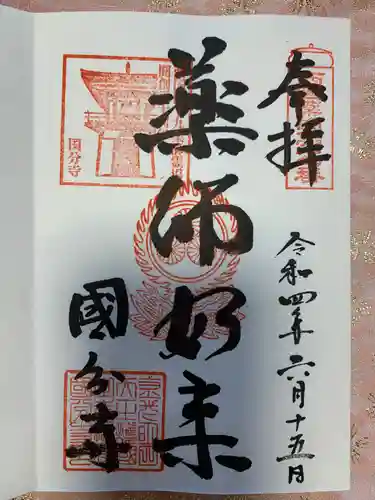 奉拝
令和四年六月十五日
薬師如来
國分寺
国分寺